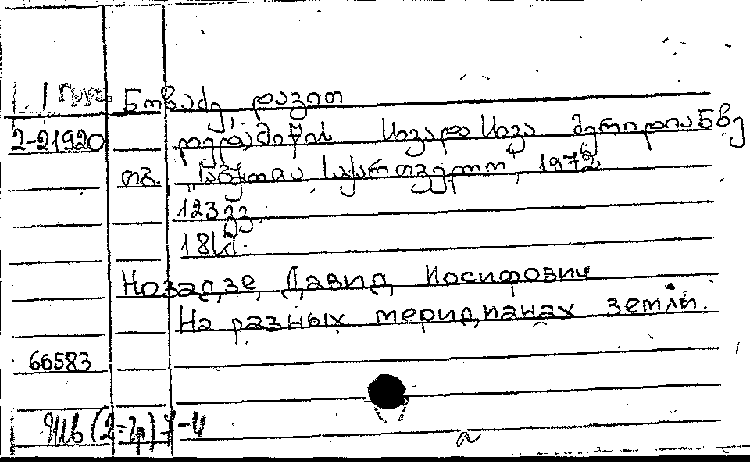 ნოზაძე, დავით
2-21920 დედამიწის სხვადასხვა მერიდიანზე
თბ. "საბჭოთა საქართველო", 1972
123 გვ.
18 სმ.
Нозадзе, Давид Иосифович
На разных меридианах земли.
66583